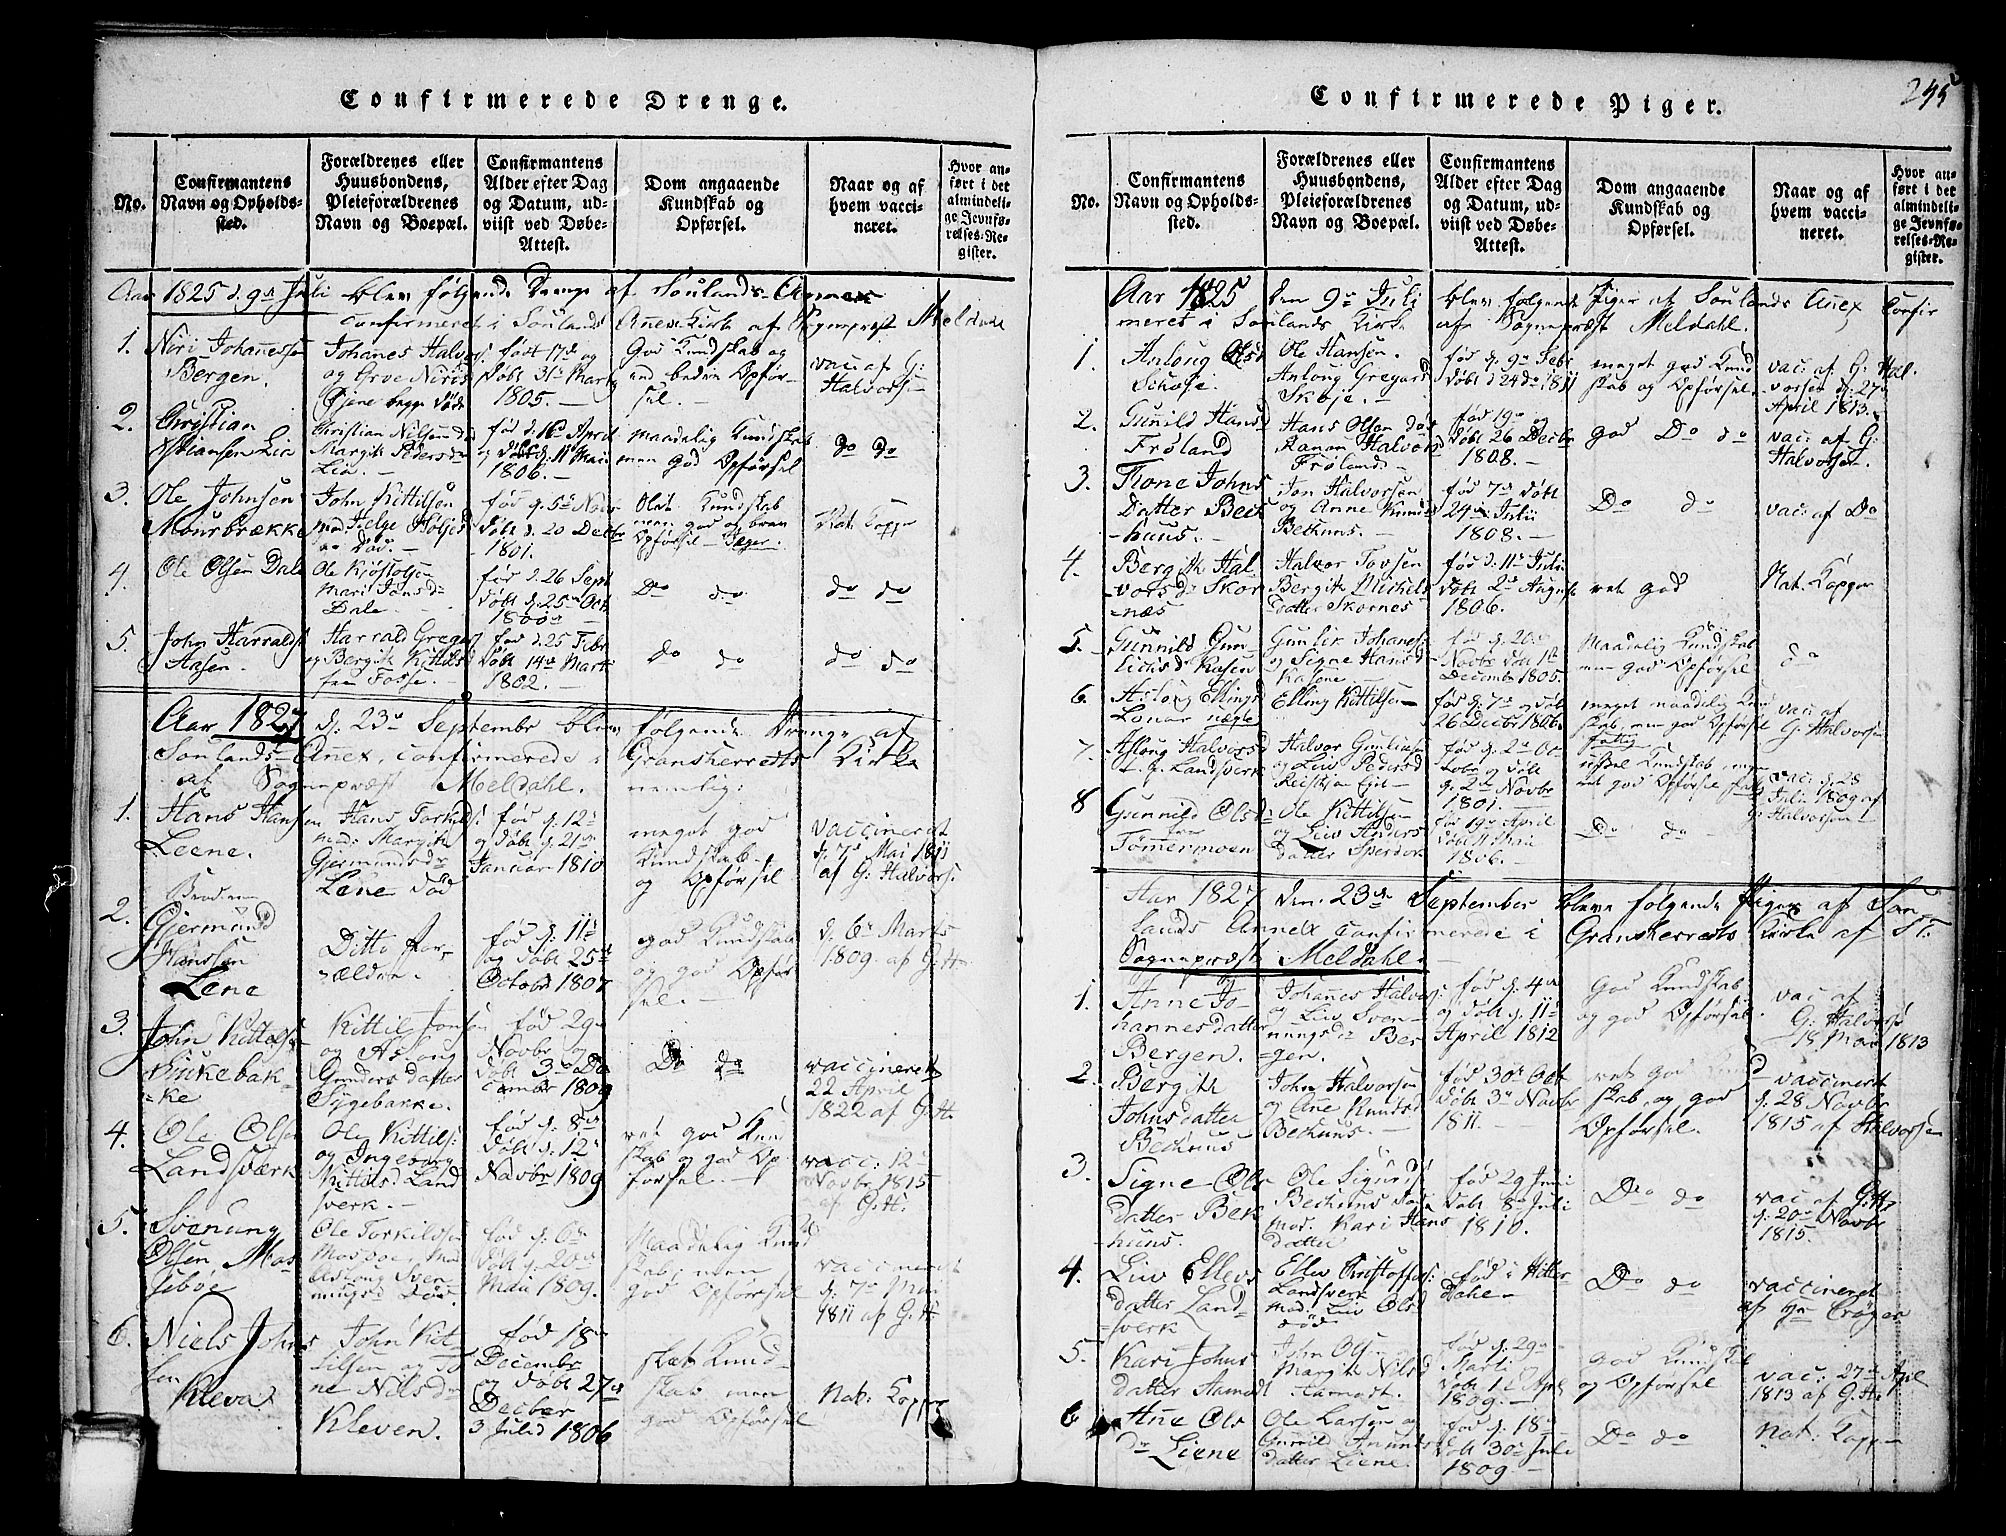 Confirmerede Drenge.
No.
Confirmantens
Navn og Opholds-
sted.
Forældrenes eller
Huusbondens,
Pleieforældrenes
Navn og Boepæl.
Confirmantens
Alder efter Dag
og Datum, ud-
viist ved Døbe-
Attest.
Dom angaaende
Kundskab og
Opførsel.
Naar og af
hvem vacci-
neret.
Hvor an-
ført i det
almindeli-
ge Jevnfø-
relses-Re-
gister.
Aar 1825 d. 9de Juli blev følgende Drenge af Soulands-Annex
confirmeret i Soulands Anex Kirke af Sognepræst Meldahl
1.
Bergen.
Johanes Halvors
født 17de og
døbt 31te Marty
1805.
God Kundskab og
vac: af G:
Halvors:
2.
Christian
Christian Nilsen
Lia.
1806.
maadelig Kundskab
men god Opførsel
do do
3.
Ole Johnsen
Mourbrække
John Kittilsen
fød d. 5te Novbr
døbt d. 20 Decbr
1801.
Nat. Kopper
4.
Ole Olsen Dale
Dale
fød d. 26 Sept
døbt d. 25de Oct
1800
Do do
do do
5.
John Harralds
Aasen.
Harrald Gregers
og Bergit Kittilsd
fra Fosse.
fød d. 25 Febr
døbt 14de Marti
1802.
do do
do do
Aar 1827 d. 23de Septembr blev følgende Drenge af
Soulands Anex, confirmerede i Gransherrets Kirke
af Sognepræst Meldahl. nemlig:
1.
Hans Hansen
Leene.
Hans Torkilds
Gjermundsdr
Lene død
fød d. 12te
og døbt d. 21de
Januar 1810
meget god
Kundskab
og Opførsel
vaccineret
d. 7de Mai 1811
af G: Halvors:
2.
Gjermund
Hansen
Lene
Ditto for-
ældre.
fød d. 11te
og døbt 25de
Octobr 1807
god Kundskab
og god Opfør
sel.
d. 6te Marts
1809. af G. H.
3.
John Kittels
Kittil Jonsen
og Asloug
Gunders datter
Sygebakke.
fød 29de
Novbr og
døbt 3de De
cember 1809
Do do
vaccineret
22 April
1822 af G. H.
4.
Ole Olsen
Landsværk
Ole Kittils:
og Ingeborg
Kittilsd Land
sverk.
fød d. 8de
døbt d. 12te
Novbr 1809
ret god Kund
skab og god Op
førsel.
vacc: 12te
Novbr 1815
af G. H.
5.
Svenung
Olsen, Mos-
eboe
Ole Torkilds
Asloug Sven-
nungsd død.
fød d. 6te
døbt d. 20de
Maii 1809.
Maadelig Kund
skab, men
god Opførsel
vaccineret
d: 7de Mai
1811 af G. H.
6.
Niels Johns
sen
Kleva
John Kit-
tilsen og To
ne Nilsdr
Kleven.
fød 18de
Decembr
og døbt 27de
Decber
1806
slet Kund-
skab men
god Opførsel
Nat: Kopper
Confirmerede Piger.
295
No.
Confirmantens
Navn og Opholds-
sted.
Forældrenes eller
Huusbondens,
Pleieforældrenes
Navn og Boepæl.
Confirmantens
Alder efter Dag
og Datum, ud-
viist ved Døbe-
Attest.
Dom angaaende
Kundskab og
Opførsel.
Naar og af
hvem vacci-
neret.
Hvor an-
ført i det
almindeli-
ge Jevnfø-
relses-Re-
gister.
Aar 1825 den 9de Juli blev følgende Piger af Soulands Anex Confir
meret i Soulands Kirke af Sognepræst Meldahl.
1.
Anlaug Olsd
Skoje.
Ole Hansen.
Anlaug Gregars
Skoje.
fød d. 9de Febr
døbt d 24 do 1811
meget god Kund
skab og Opførsel.
vac: af G: Hal-
vorsen d. 27de
April 1813.
2.
Gunnild Hans
Frøland
Hans Olsen
Frøland
fød 19de og
døbt 26 Decbr
1808.
god Do do
vac: af G:
Halvorsen.
3.
Tone Johns
Datter Beck
huus.
Jon Halvorsen
og Anne Knuds
Beckuus.
fød 7de døbt
24de Julii
1808.
Do do
vac: af Do
4.
Bergit Hal-
vorsdr Skor
næs
Halvor Tovsen
Bergit Michels
datter Skornes
fød d. 11te Juli
døbt 2de August
1806.
ret god
Nat. Kopper
5.
Gunnild Gun-
Gunlik Johanes
og Signe Hansd
fød d. 20de
Novbr døbt 1ste
December 1805.
Maadelig Kundskab
men god Opførsel
do
6.
Aslaug Ellings
Elling Kittilsen
fød d. 7de og døbt
26 Decbr 1806.
meget maadelig Kund
skab, men god Opførsel
vac: af
G: Halvorsen
7.
Aslaug Halvorsd
Landsverk
Halvor Gunleiksen
og Liv Pedersd
fød d. 2de Oc
tobr og døbt
d. 2de Novbr
1801.
vac: d. 28
Julii 1809 af
G. Halvorsen
8
Gunnild Olsdr
Tømermoen
Ole Kittilsen
og Liv Anders
datter
fød 19de April
døbt 11 Maii
1806.
Do do
Aar 1827 den 23de September bleve følgende Piger af Sou-
lands Annex confirmerede i Gransherrets Kirke af Hr.
Sognepræst Meldahl.
1.
Anne Jo-
hannesdatter
Bergen.
Johannes Halvors:
og Liv Sven-
nungsdr Ber
gen.
fød d: 4de
og døbt d: 11te
April 1812
God Kundskab
og god Opførsel
vac af
G: Halvors
18 Mai 1813
2.
Bergit
Johnsdatter
Beckuus
John Halvorsen
og Ane Knudsd
Beckuus.
fød 30te Oct
døbt 3de Novbr
1811.
ret god Kund
skab, og god
Opførsel.
vaccineret
d. 28 Novbr
1815 af Halvorsen
3.
Signe Ols
datter Bek
huus.
Ole Sigurds
Beckuus
mod. Kari Hans
datter
fød 29 Juni
døbt 8de Juli
1810.
Do do
vac af G. H.
d. 20de Novbr
1815.
4.
Liv Ellevs
datter Land-
sverk
Ellev Christoffers:
Landsverk
mod. Liv Olsd
død.
fød i Hitter
dahl
Do do
vaccineret
af Hr Crøger
5.
Kari Johns
datter Aamodt
John Olsen
Margit Nilsd
Aamodt.
fød d. 29de
Marti
1809.
God Kundskab
og Opførsel
vac: 27de April
1813 af G. H.
6
Ane Ols
dr Liene
Ole Larsen og
Gunild Amunds
datter Liene.
fød d. 18de
døbt 30te Juli
1809.
Do do
Nat: Kopper